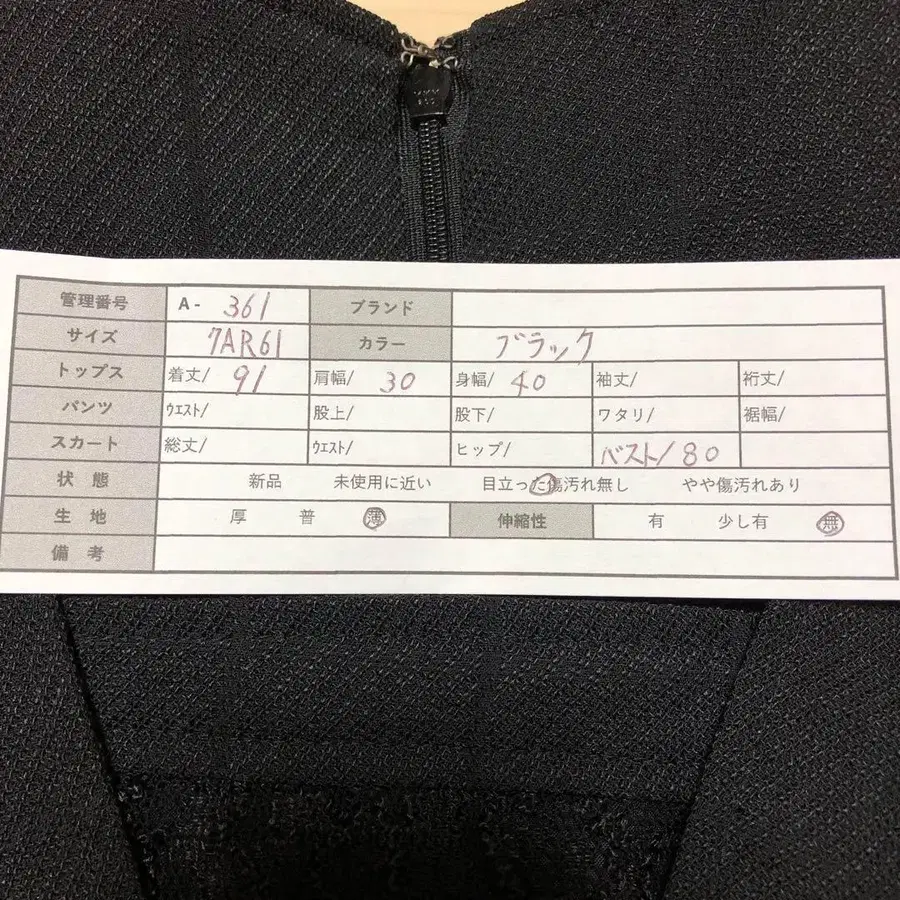 管理番号 A- 361 ブランド
サイズ 7AR61 カラー ブラック
トップス 着丈/ 91 肩幅/ 30 身幅/ 40 袖丈/ 裄丈/
パンツ ウエスト/ 股上/ 股下/ ワタリ/ 裾幅/
スカート 総丈/ ウエスト/ ヒップ/ バスト/80
状 態 新品 未使用に近い 目立った傷汚れ無し やや傷汚れあり
生 地 厚 普 薄 伸縮性 有 少し有 無
備 考